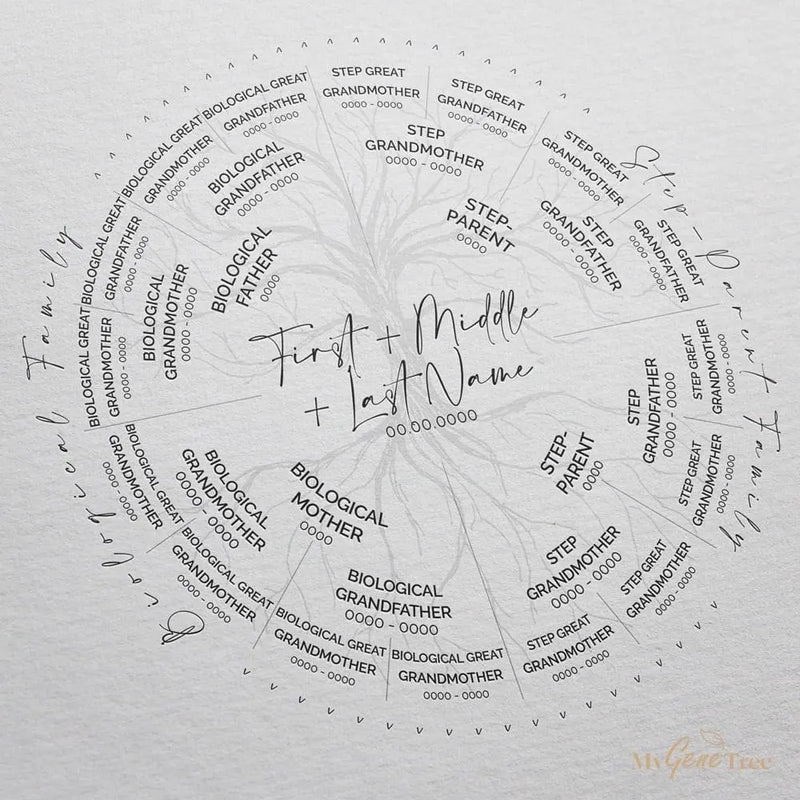 BIOLOGICAL GREAT
GRANDFATHER
0000 - 0000
STEP GREAT
GRANDMOTHER
0000 - 0000
STEP GREAT
GRANDFATHER
0000 - 0000
STEP GREAT
GRANDMOTHER
0000 - 0000
STEP GREAT
GRANDFATHER
0000 - 0000
STEP GREAT
GRANDMOTHER
0000 - 0000
STEP GREAT
GRANDMOTHER
0000 - 0000
STEP GREAT
GRANDMOTHER
0000 - 0000
STEP GREAT
GRANDMOTHER
0000 - 0000
BIOLOGICAL GREAT
GRANDMOTHER
0000 - 0000
BIOLOGICAL GREAT
GRANDMOTHER
0000 - 0000
BIOLOGICAL GREAT
GRANDMOTHER
0000 - 0000
BIOLOGICAL GREAT
GRANDMOTHER
0000 - 0000
BIOLOGICAL GREAT
GRANDMOTHER
0000 - 0000
BIOLOGICAL GREAT
GRANDFATHER
0000 - 0000
BIOLOGICAL GREAT
GRANDMOTHER
0000 - 0000
BIOLOGICAL
GRANDFATHER
0000 - 0000
STEP
GRANDMOTHER
0000 - 0000
STEP
GRANDFATHER
0000 - 0000
STEP
GRANDFATHER
0000 - 0000
STEP
GRANDMOTHER
0000 - 0000
BIOLOGICAL
GRANDFATHER
0000 - 0000
BIOLOGICAL
GRANDMOTHER
0000 - 0000
BIOLOGICAL
GRANDMOTHER
0000 - 0000
BIOLOGICAL
FATHER
0000
STEP-
PARENT
0000
STEP-
PARENT
0000
BIOLOGICAL
MOTHER
0000
First + Middle
+ Last Name
00.00.0000
Biological Family
Step-Parent Family
My Gene Tree